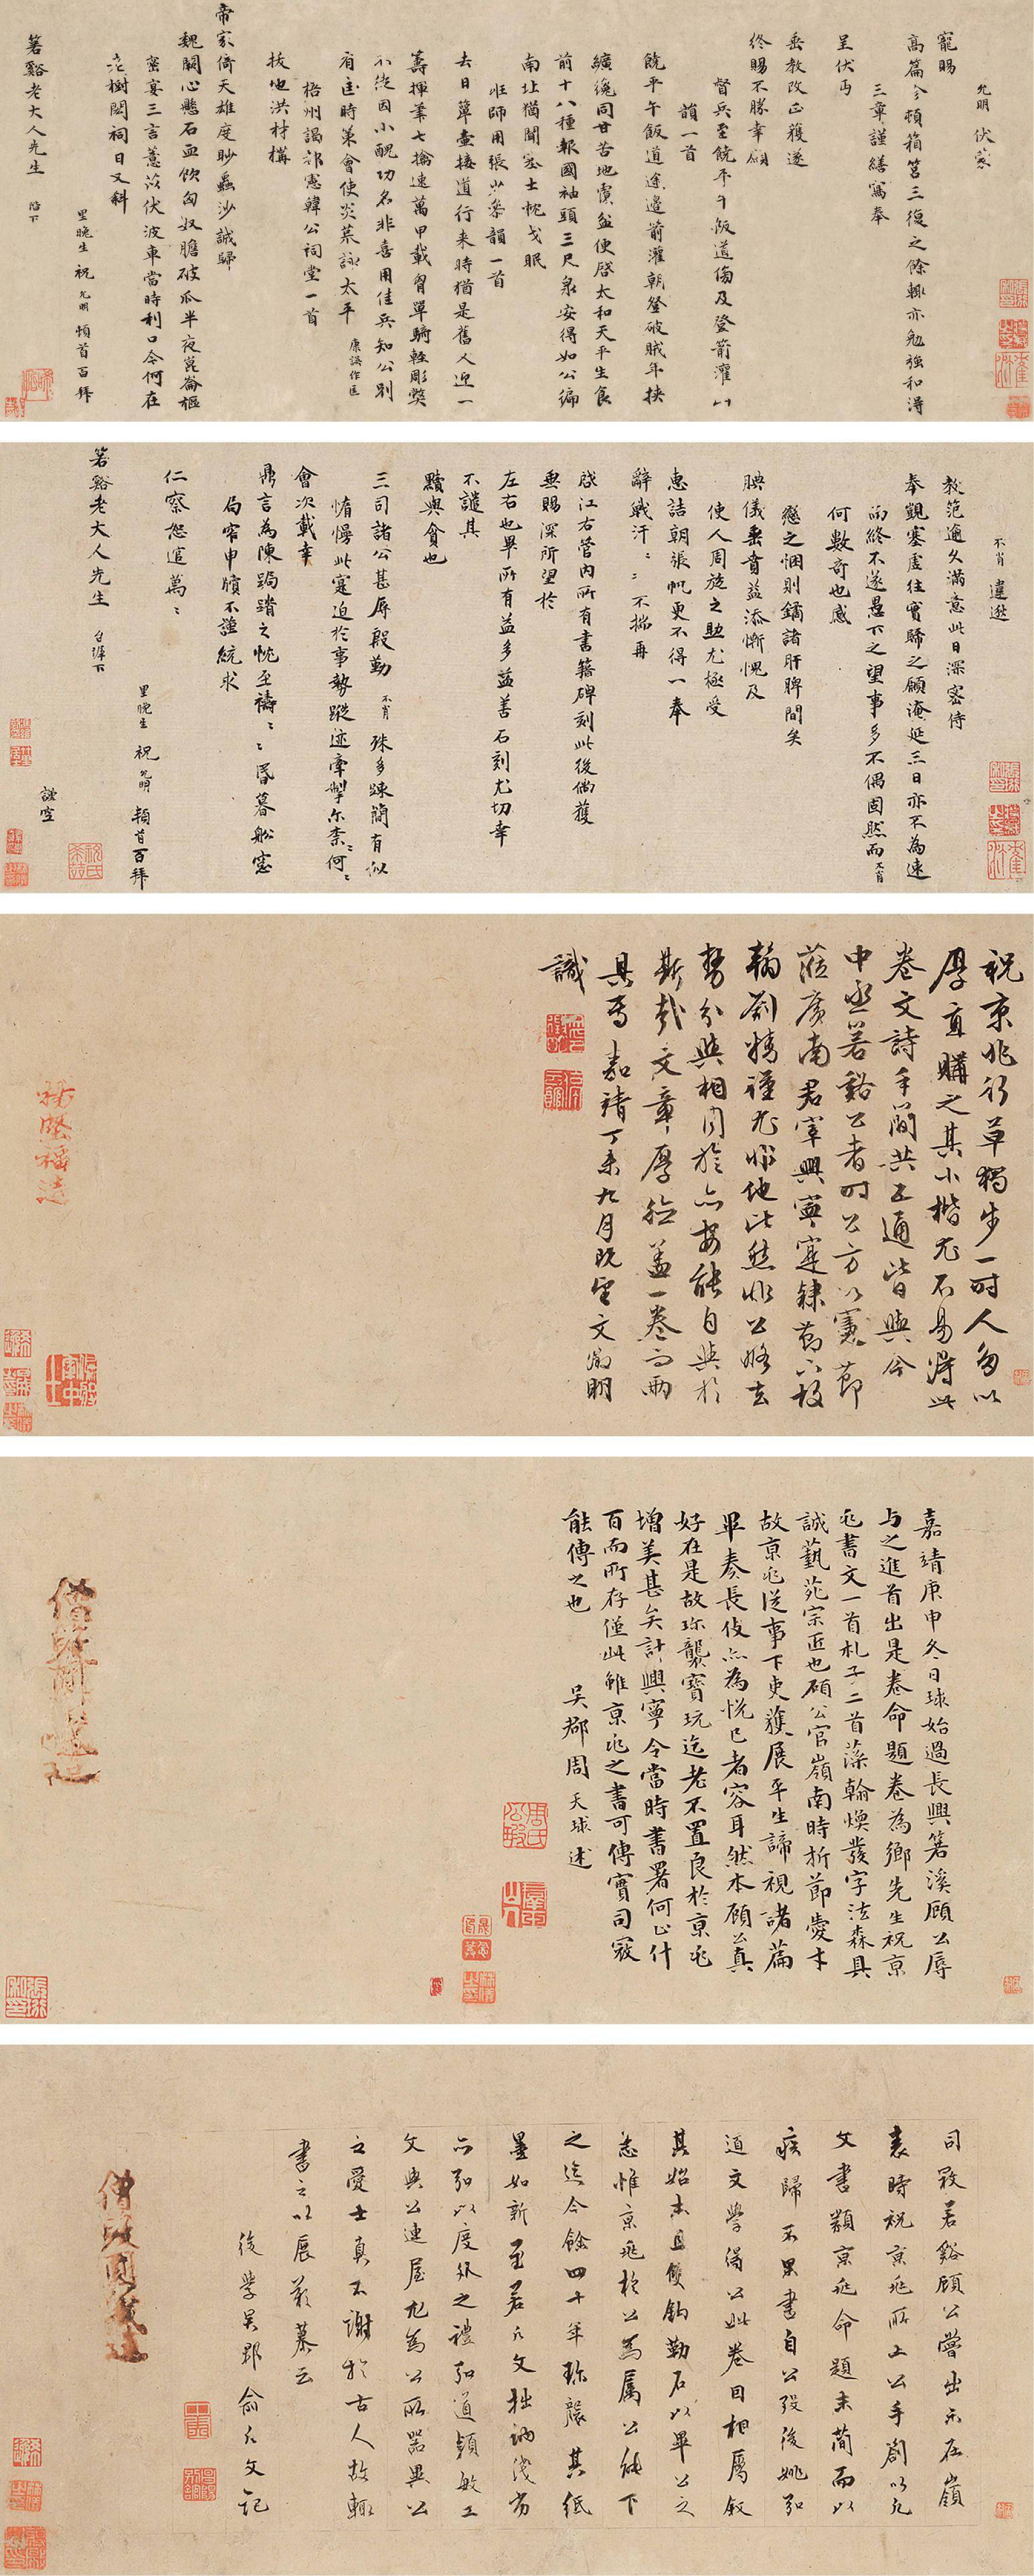 允明 伏蒙
寵賜
高篇今頓箱筥三復之餘輒亦勉強和得
三章謹繕寫奉
呈伏丐
垂教改正獲遂
終賜不勝幸願
督兵至饒平午飯道傷及登箭灌
韻一首
饒平午飯道途邊箭灌朝登破賊年挾
纊纔同甘苦地虞盆便啓太和天平生食
前十八種報國袖頭三尺泉安得如公編
南北猶聞塞士枕戈眠
班師用張韻一首
去日簞壺接道行來時猶是舊人迎一
籌揮筆七擒速萬甲載胷單騎輕彫弊
不從因小醜功名非喜用佳兵知公別
有匡時策會使炎荒詠太平
梧州謁都憲韓公祠堂一首
拔地洪材構
帝家倚天雄度眇蟲沙誠歸
魏闕心懸石血飲匈奴膽破瓜半夜崑崙樞
蜜宴三言薏苡伏波車當時利口今何在
老樹閟祠日又斜
里晚生 祝 允明 頓首百拜
箬谿老大人先生 階下
不肖 違遜
教範逾久滿意此日深密侍
奉觀塞虛往實歸之願淹延三日亦不為速
而終不遂愚下之望事多不偶固然而不肖
何數奇也感
戀之悃則鏤諸肝脾間矣
腆儀垂賁益添慚愧及
使人周旋之助尤極受
惠詰朝張帆更不得一奉
辭戰汗〻〻不揣再
啓江右管內所有書籍碑刻此後倘獲
垂賜深所望於
左右也畢所有益多益善石刻尤切幸
不譴其
黷與貪也
三司諸公甚辱殷勤不肖殊多踈簡有似
惰慢此寔迫於事勢蹤迹牽掣尔柰〻何〻
會次載幸
鼎言為陳跼蹐之忱至禱〻〻昏暮舩窓
局窄申牘不謹統求
仁察恕逭萬〻
里晚生 祝 允明 頓首百拜
箬谿老大人先生 台墀下
謹空
祝京兆行草獨步一時人多以
厚直購之其小楷尤不易得此
卷文詩手簡共五通皆與今
中丞箬谿公者時公方以憲節
蒞廣南君宰興寧寔隸節下故
翰劄精謹尤非他比然非公略去
勢分與相周旋亦安能自與於
斯哉文章厚德蓋一卷而兩
具焉 嘉靖丁未九月既望文徵明
識
嘉靖庚申冬日球始過長興箬溪顧公辱
与之進首出是卷命題卷為鄉先生祝京
兆書文一首札子二首藻翰煥發字法森具
誠藝苑宗匠也顧公官嶺南時折節愛才
故京兆從事下吏獲展平生諦視諸篇
畢奏長伎亦為悅己者容耳然本顧公真
好在是故珎襲寶玩迄老不置良於京兆
增美甚矣計興寧令當時書署何止什
百而所存僅此雖京兆之書可傳實司寇
能傳之也 吳郡周天球述
司寇若谿顧公嘗出示在嶺
表時祝京兆所上公手劄以允
文書類京兆命題末簡而以
疾歸不果書自公歿後姚弘
道文學得公此卷因相屬叙
其始末且雙鈎勒石以畢公之
志惟京兆於公為屬公能下
之迄今餘四十年珎襲其紙
墨如新至若允文拙訥淺劣
而弘以度外之禮弘道穎敏工
文與公連居尤為公所器異公
之愛士真不謝於古人故輒
書之以展嚮慕云
後學吳郡俞允文記